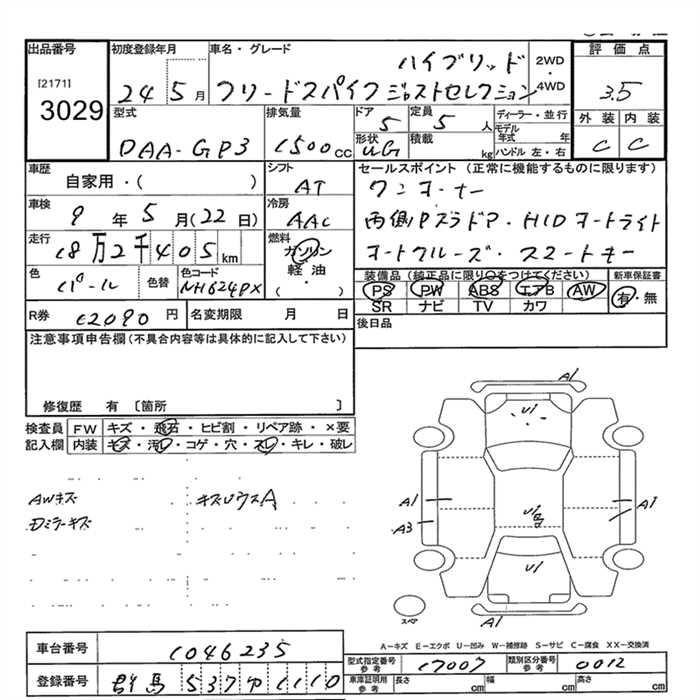 出品番号 [2171] 3029
初度登録年月 24 5月
車名・グレード ハイブリッド
フリードスパイク ジャストセレクション
2WD・4WD
評価点 3.5
外装 C 内装 C
型式 DAA-GP3
排気量 1500cc
ドア 5
形状 UG
定員 5人
積載 kg
ディーラー・並行
モデル年式 年
ハンドル 左・右
車歴 自家用・( )
車検 9年5月(22日)
走行 18万2千405km
色 パール 色替 色コード NH624PX
シフト AT
冷房 AAC
燃料 ガソリン 軽油 ( ・ )
セールスポイント (正常に機能するものに限ります)
ワンオーナー
両側Pスラドア・HIDオートライト
オートクルーズ・スマートキー
装備品 (純正品に限り○をつけてください)
PS PW ABS エアB AW
SR ナビ TV カワ
新車保証書 有・無
R券 12090円
名変期限 月 日
後日品
注意事項申告欄(不具合内容等は具体的に記入して下さい)
修復歴 有 〔箇所 〕
検査員記入欄
FW キズ・飛石・ヒビ割・リペア跡・×要
内装 キズ・汚レ・コゲ・穴・スレ・キレ・破レ
AWキズ
キズUウスA
A1
U1
A1
A3
U1
A1
U1
A1
スペア
A-キズ E-エクボ U-凹み W-補修跡 S-サビ C-腐食 XX-交換済
車台番号 1046235
登録番号 群馬 537 ゆ 1110
型式指定番号 参考 17007
類別区分番号 参考 0012
車庫証明用 参考 長さ cm 幅 cm 高さ cm